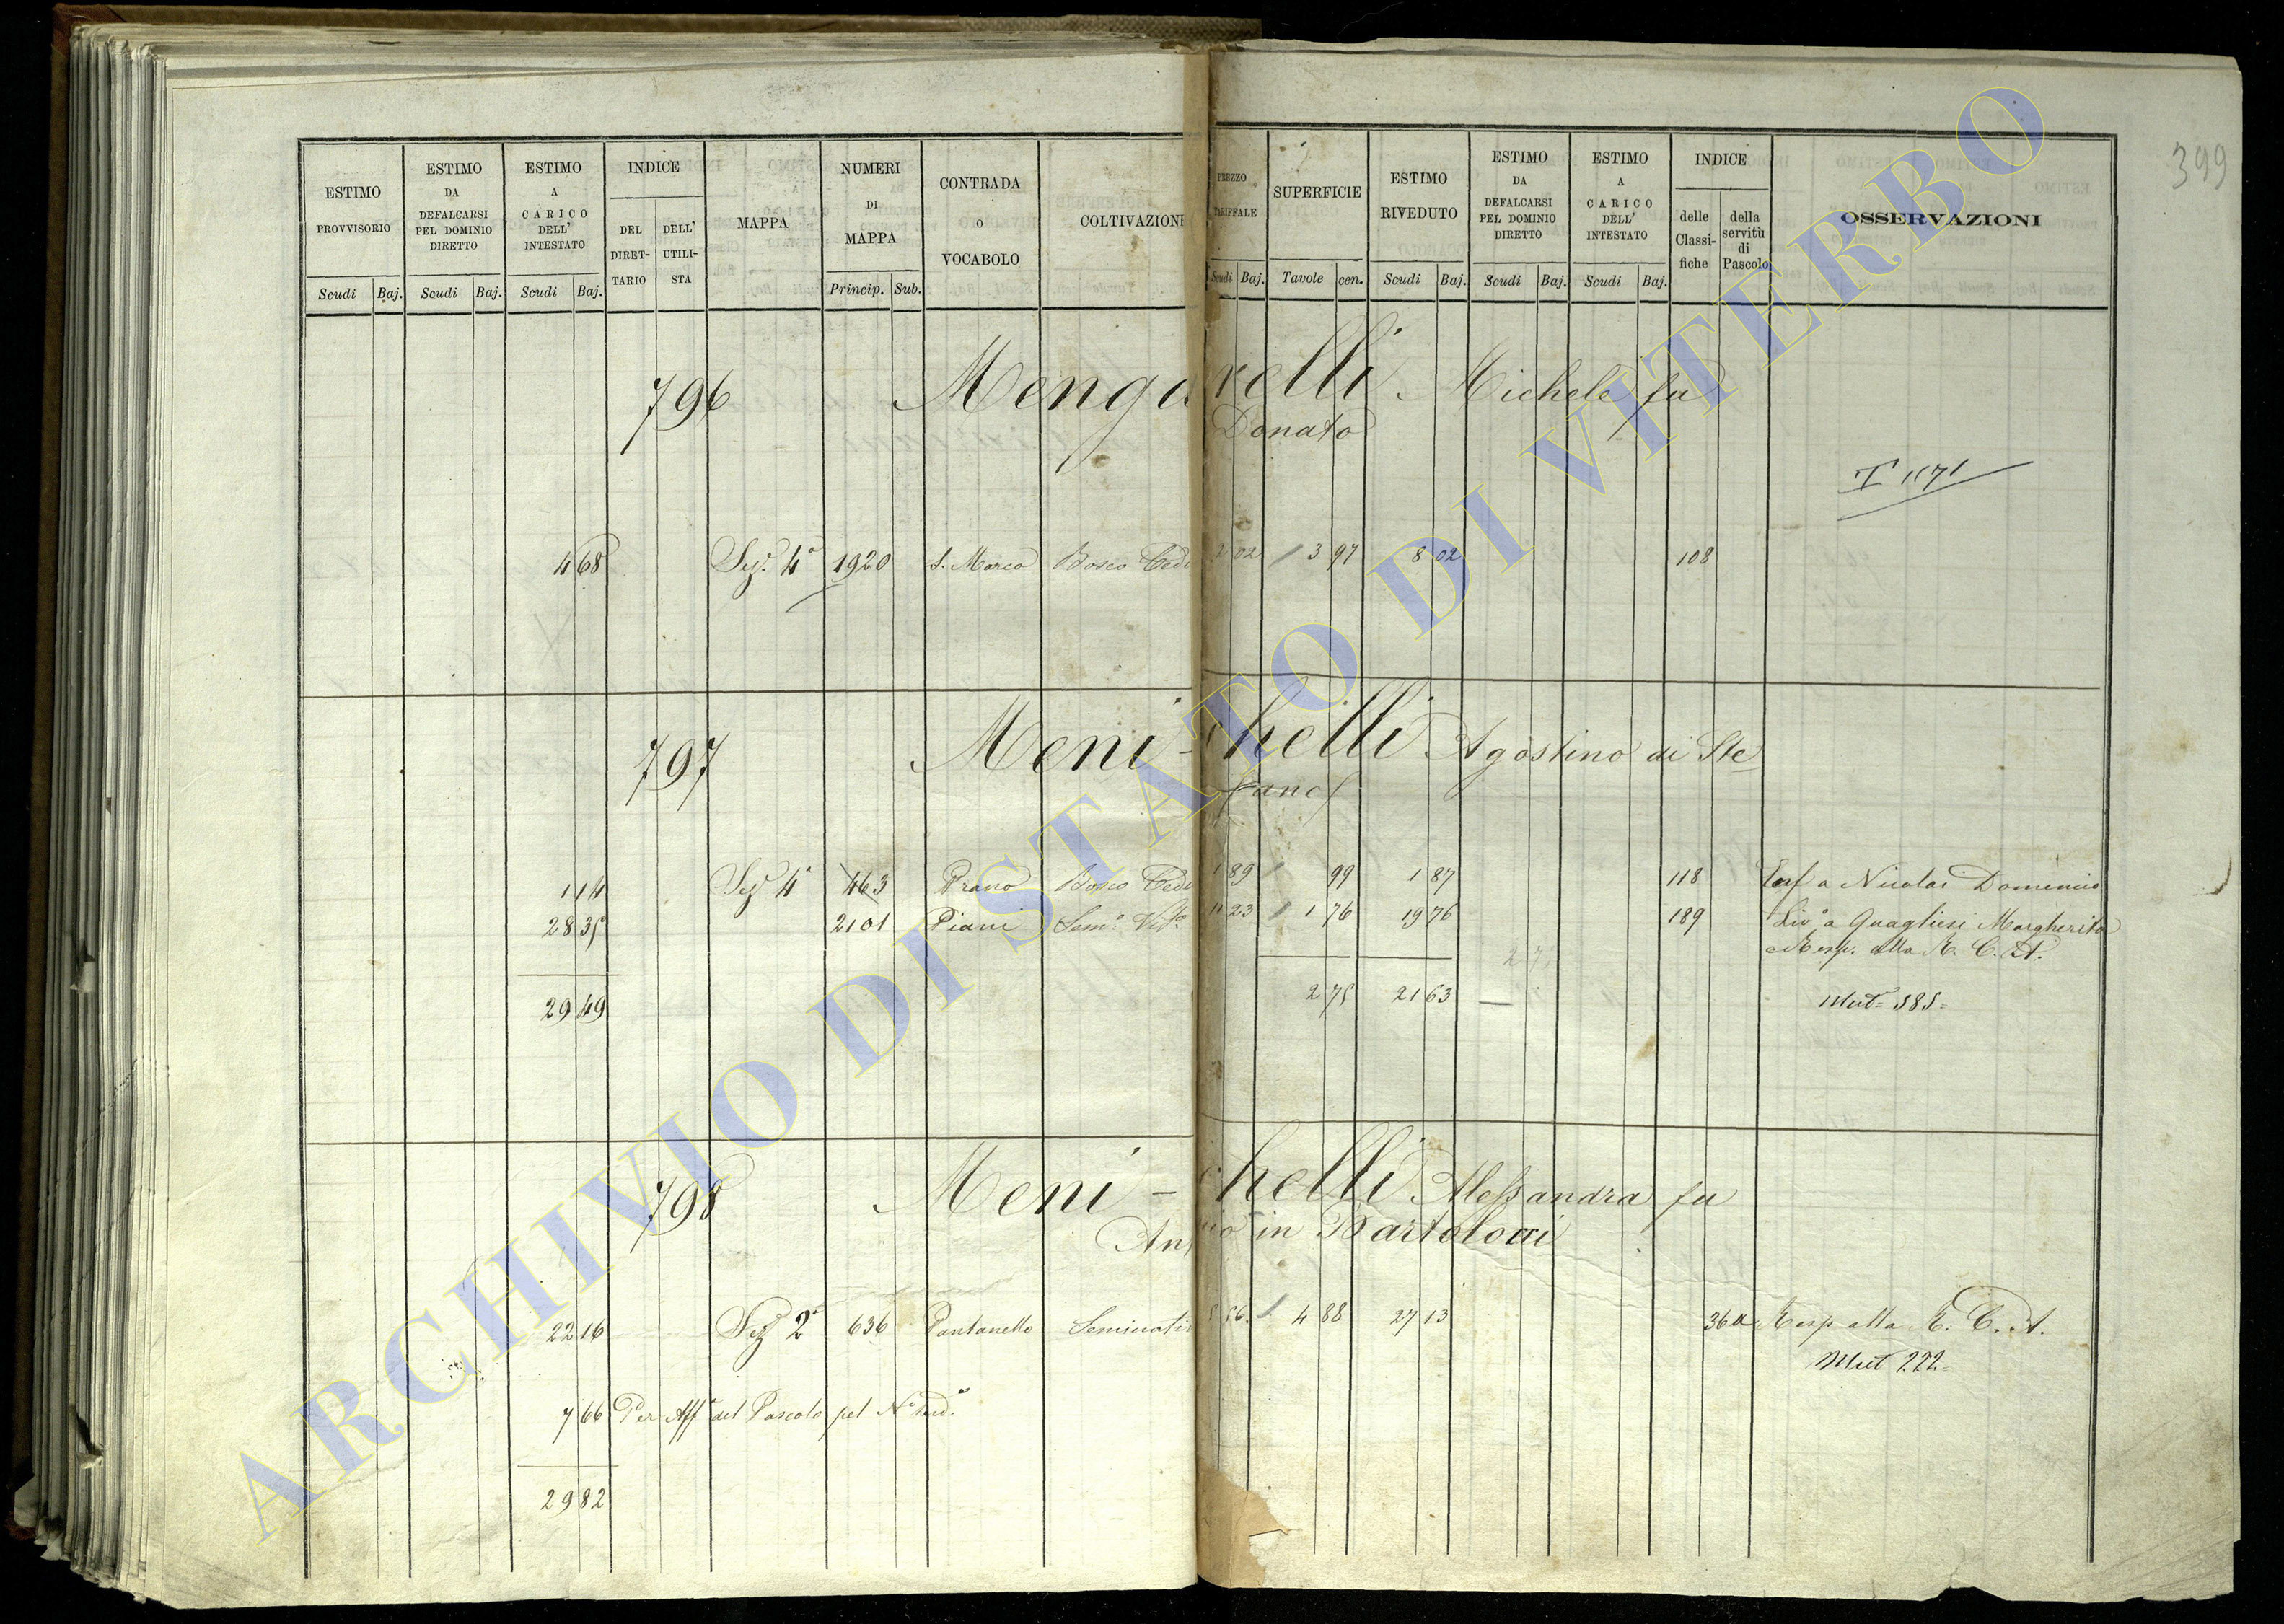 399
ESTIMO PROVVISORIO Scudi Baj.
ESTIMO DA DEFALCARSI PEL DOMINIO DIRETTO Scudi Baj.
ESTIMO A CARICO DELL' INTESTATO Scudi Baj.
INDICE DEL DIRETTARIO DELL' UTILISTA
MAPPA
NUMERI DI MAPPA Princip. Sub.
CONTRADA O VOCABOLO
COLTIVAZIONE
PREZZO TARIFFALE Scudi Baj.
SUPERFICIE Tavole cen.
ESTIMO RIVEDUTO Scudi Baj.
ESTIMO DA DEFALCARSI PEL DOMINIO DIRETTO Scudi Baj.
ESTIMO A CARICO DELL' INTESTATO Scudi Baj.
INDICE delle Classifiche della servitù di Pascolo
OSSERVAZIONI
796 Mengarelli Michele fu
Donato
T 1171
4 68 Sez. 4ª 1920 S. Marco Bosco Cedu 2 02 3 97 8 02 108
797 Meni-chelli Agostino di Ste
fano
1 14 Sez 4ª 463 Prano Bosco Cedu 1 89 99 1 87 118 Enf a Nicolai Domenico
28 35 2101 Piani Sem.º Vit.to 11 23 1 76 19 76 189 Liv.º a Quagliesi Margherita
e Resp. alla R. C. A.
29 49 2 75 21 63 Mut= 585=
798 Meni-chelli Alessandra fu
in Bartolocci
22 16 Sez 2ª 636 Pantanello Seminati 56 4 88 27 13 36 a Resp alla R. C. A.
Mut 222=
7 66 Per Aff.º del Pascolo pel Nº
29 82
ARCHIVIO DI STATO DI VITERBO